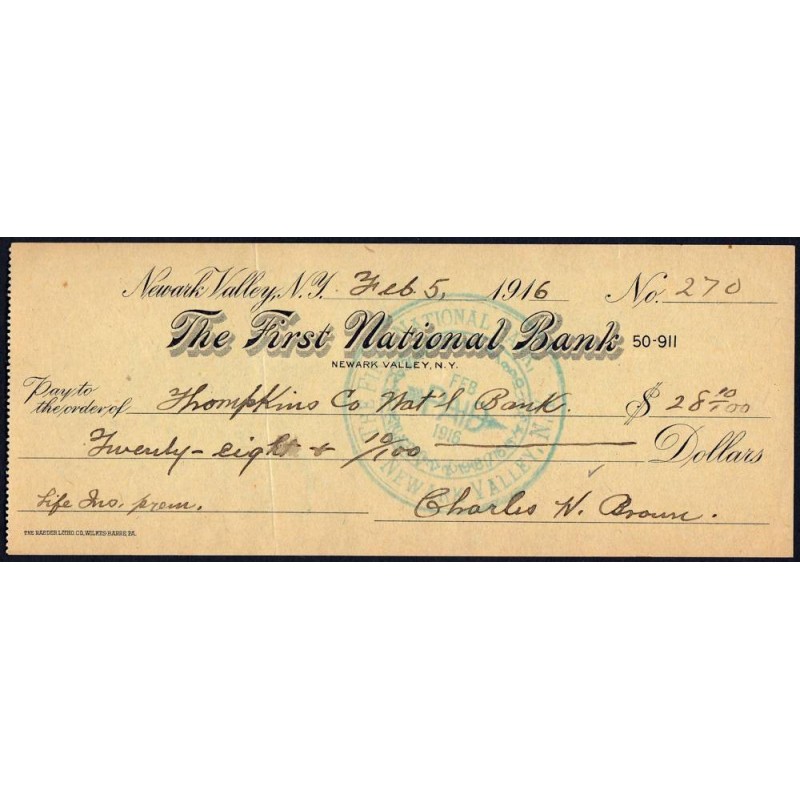 Newark Valley, N.Y. Feb 5, 1916 No. 270
The First National Bank 50-911
NEWARK VALLEY, N.Y.
Pay to the order of Thompkins Co Nat'l Bank. $ 28 10/100
Twenty-eight + 10/100 Dollars
Life Ins. prem. Charles H. Brown.
THE RAEDER LITHO CO, WILKES-BARRE PA.
NATIONAL
FEB
PAID
1916
NEWARK VALLEY, N.Y.